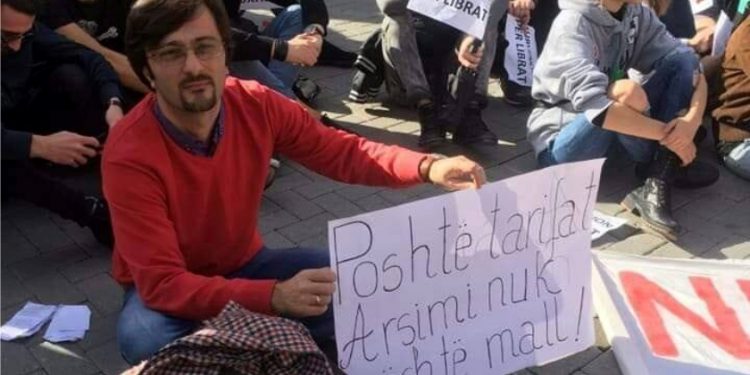 LIBRAT
PËR LIBRAT
Poshtë tarifat
Arsimi nuk
është mall!
N